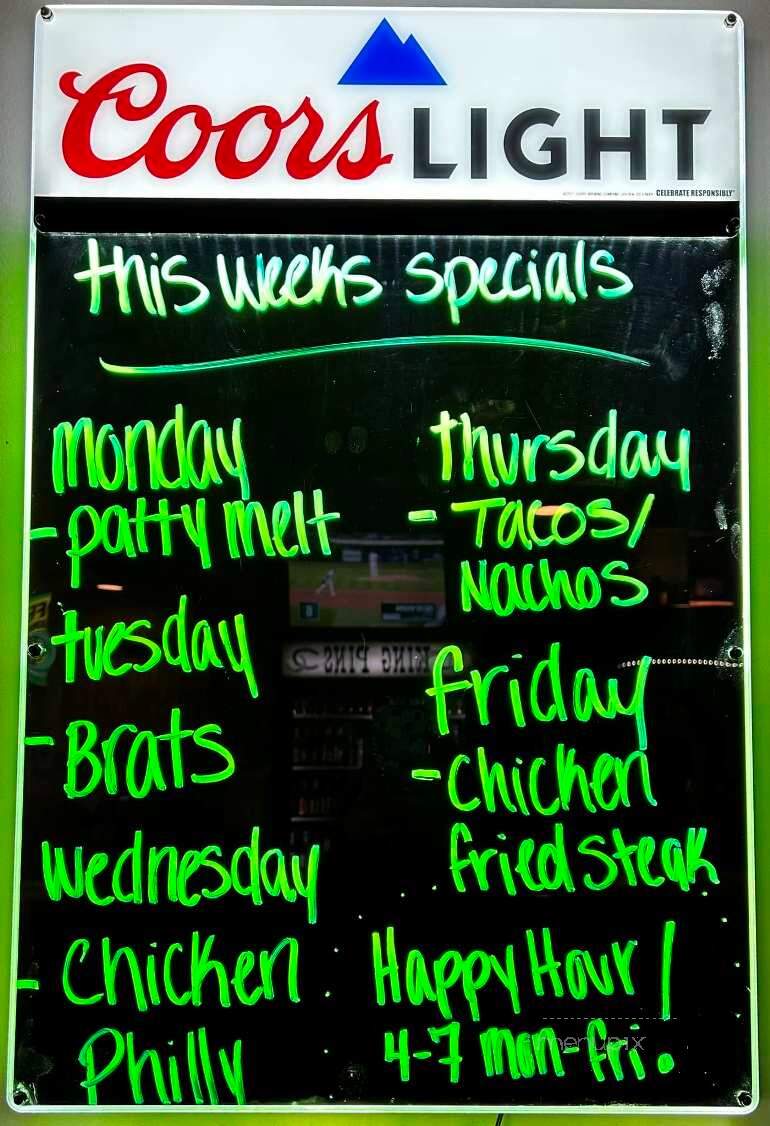 Coors LIGHT
CELEBRATE RESPONSIBLY
this weeks specials
monday
- patty melt
tuesday
- Brats
wednesday
- Chicken
Philly
thursday
- Tacos/
Nachos
friday
- chicken
fried steak
Happy Hour /
4-7 mon-fri.
KING PINS
menupix